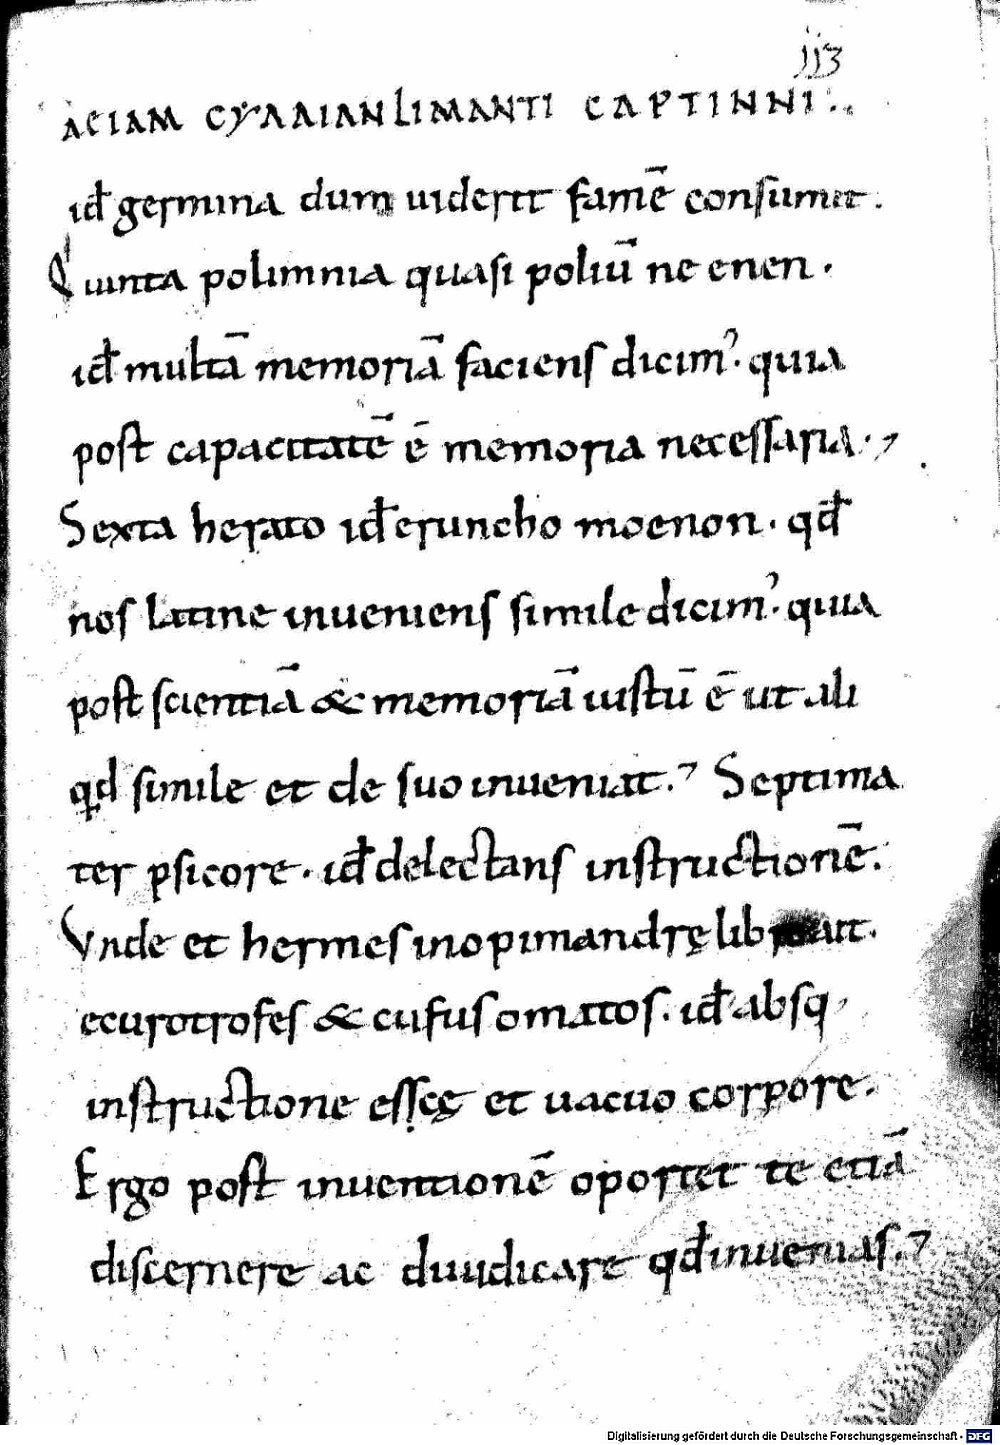 113
ACIAM CYAAIANLIMANTI CAPTINNI:.
id̄ germina dum uiderit famē consumit.
Quinta polimnia quasi poliū ne enen.
id̄ multā memoriā faciens dicim᾽. quia
post capacitatē ē memoria necessaria.,
Sexta herato id̄ eruncho moenon. qd̄
nos latine inueniens simile dicim᾽. quia
post scientiā & memoriā iustū ē ut ali
qd simile et de suo inueniat.᾽ Septima
ter psicore. id̄ delectans instructionē.
Vnde et hermes inopimandrę lib ait.
ecurotrofes & cufus omatos. id̄ absq,
instructione esscę et uacuo corpore.
Ergo post inuentionē oportet te etiā
discernere ac diiudicare qd̄ inuenias.᾽
Digitalisierung gefördert durch die Deutsche Forschungsgemeinschaft - DFG